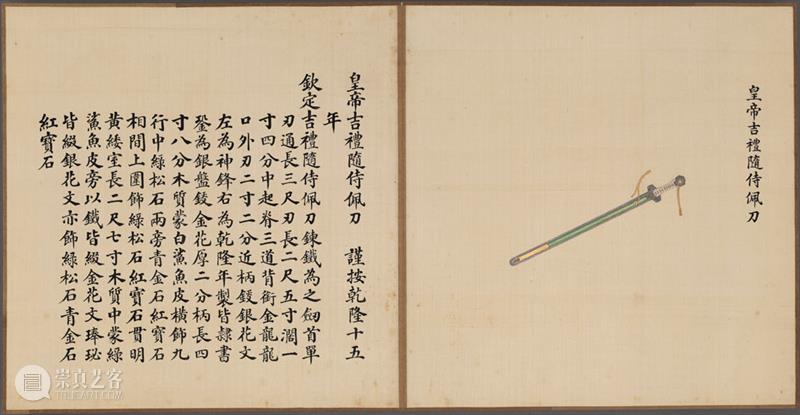 皇帝吉禮隨侍佩刀
皇帝吉禮隨侍佩刀 謹按乾隆十五
年
欽定吉禮隨侍佩刀鍊鐵為之劒首單
刃通長三尺刃長二尺五寸濶一
寸四分中起脊三道背銜金龍龍
口外刃二寸二分近柄鋄銀花文
左為神鋒右為乾隆年製皆隸書
銎為銀盤鋄金花厚二分柄長四
寸八分木質蒙白鯊魚皮橫飾九
行中綠松石兩旁青金石紅寶石
相間上圍飾綠松石紅寶石貫明
黃緌室長二尺七寸木質中蒙綠
鯊魚皮旁以鐵皆綴金花文琫珌
皆綴銀花文亦飾綠松石青金石
紅寶石
崇真艺客